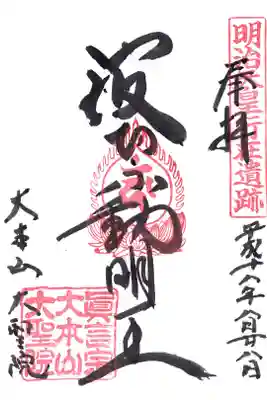 明治天皇行在遺跡
奉拝
平成十八年八月廿八日
波切不動明王
大本山 大聖院
眞言宗
大本山
大聖院